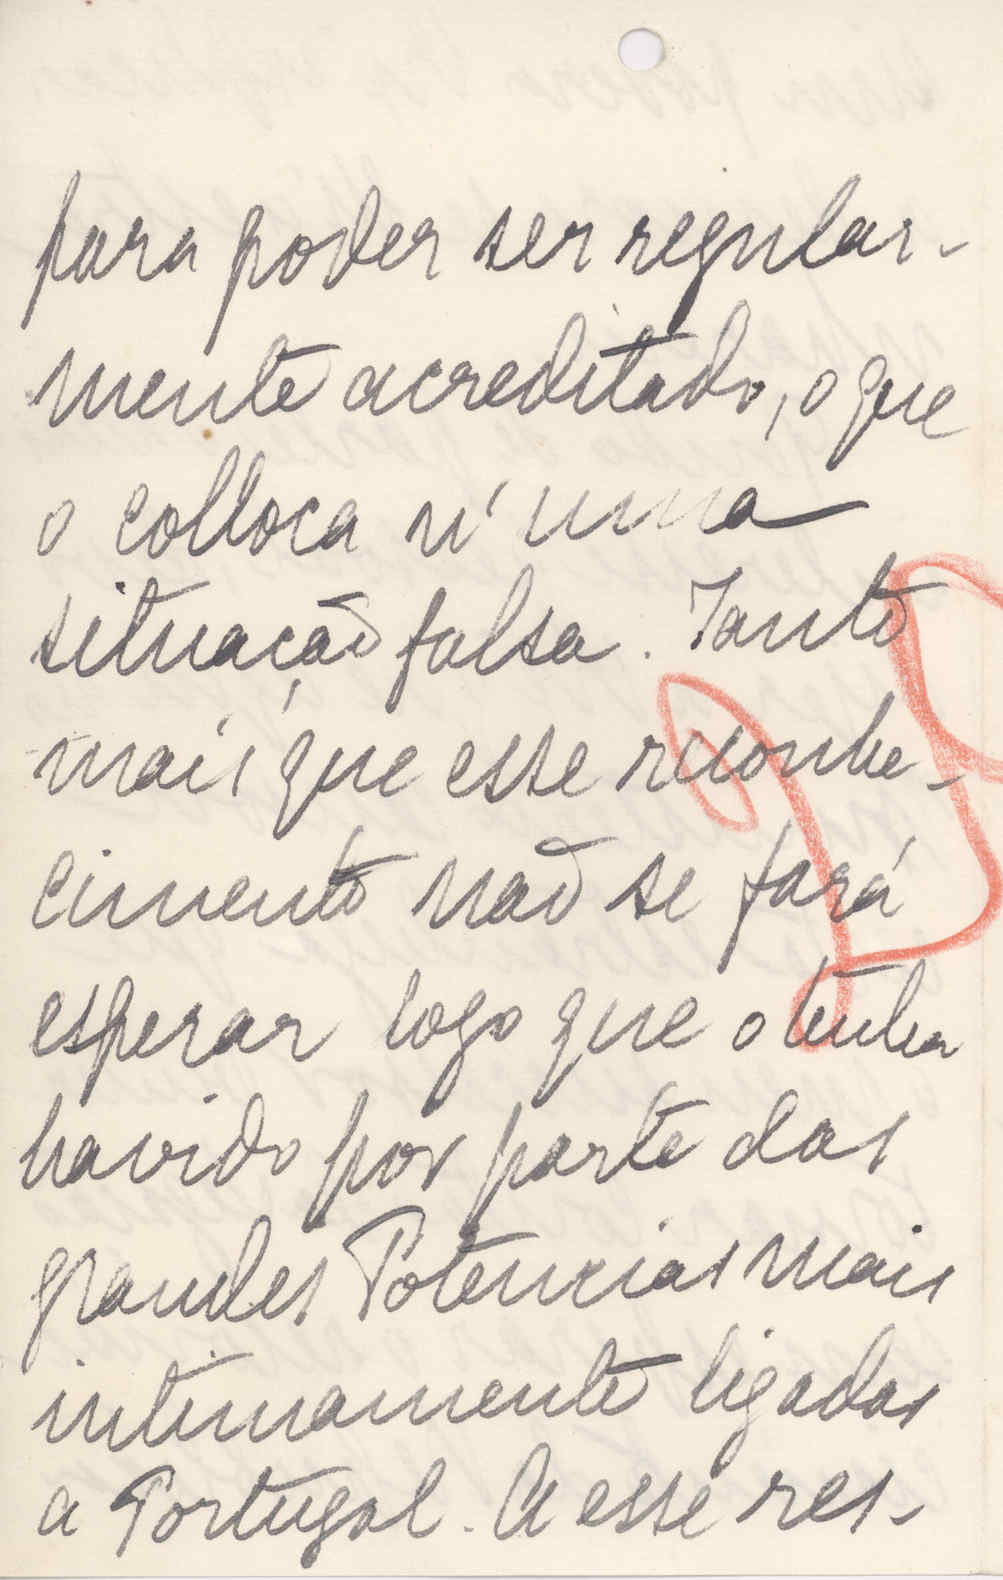 para poder ser regular-
mente acreditado, o que
o colloca n'uma
situação falsa. Tanto
mais que esse reconhe-
cimento não se fará
esperar logo que o tenha
havido por parte das
grandes Potencias mais
intimamente ligadas
a Portugal. A esse res-